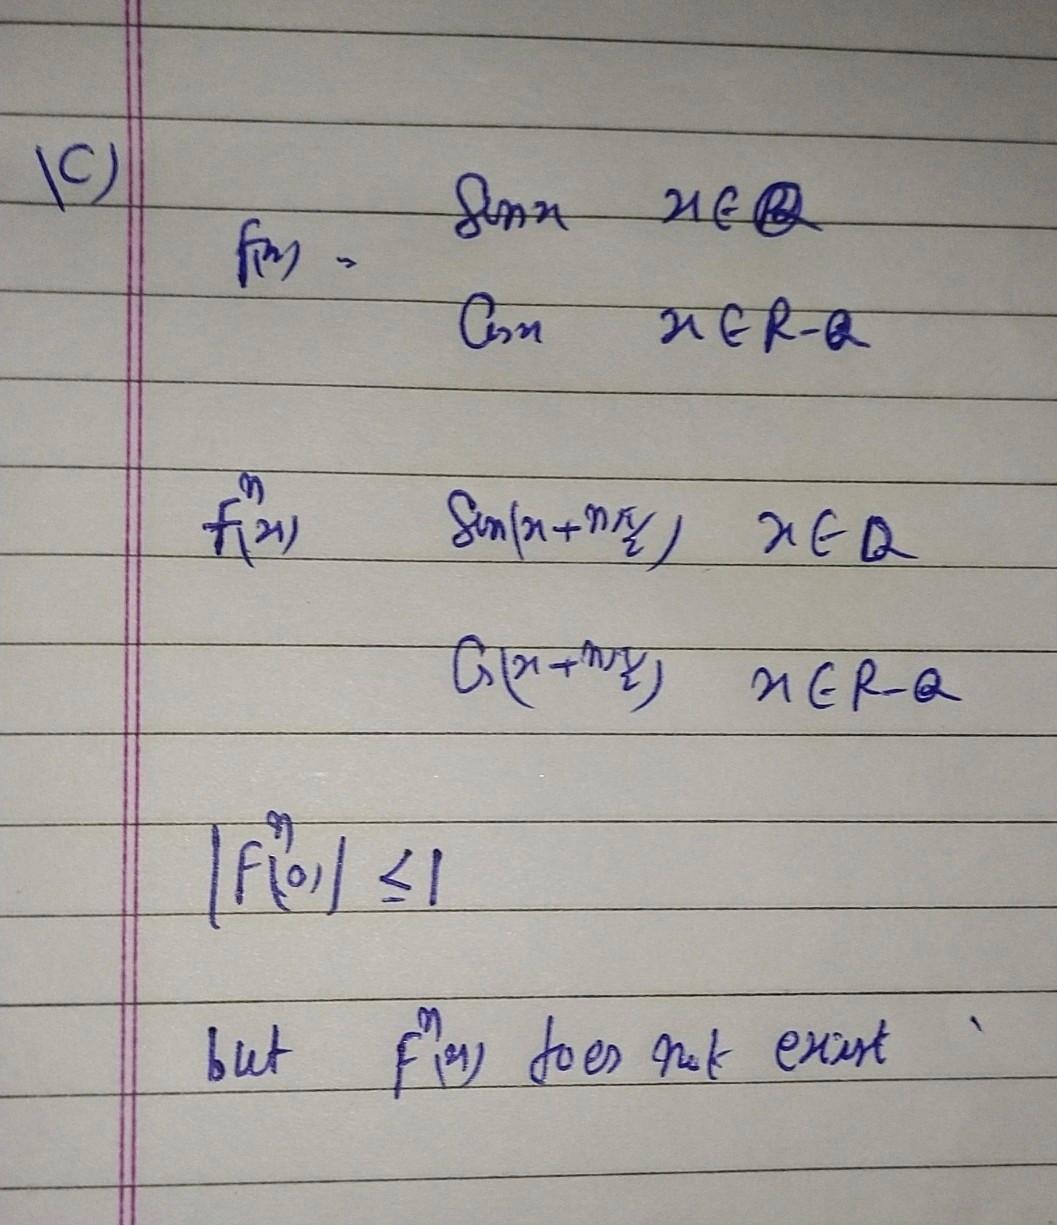 (C)
Sinx x∈Q
f(x) =
Cosx x∈R-Q
fⁿ(x) Sin(x+nπ/2) x∈Q
Cos(x+nπ/2) x∈R-Q
|Fⁿ(0)| ≤1
but Fⁿ(x) does not exist